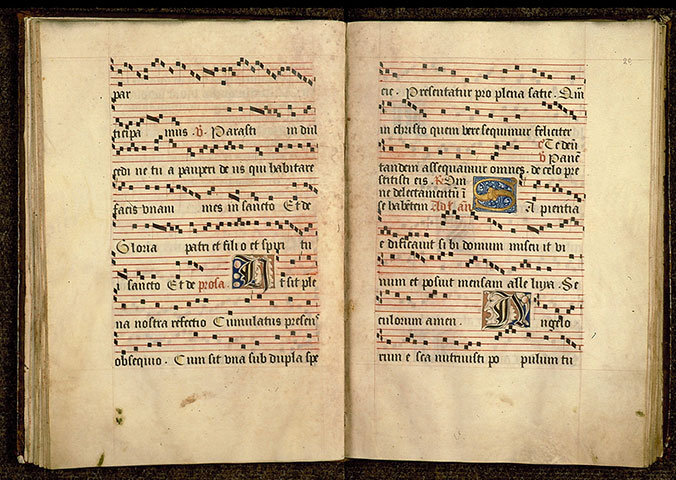 par
ticipa mus . V Parasti in dul
cedi ne tu a pauperi de us qui habitare
facis vnani mes in sancto Et de
Gloria patri et fili o et spiri tu
i sancto Et de prosa. U t sit ple
na nostra refectio Cumulatus presens
obsequio . Cum sit vna sub dupla spe
29
cie . Presentatur pro plena satie . Qm
in christo quem vere sequimur feliciter
Te deu
V Pane
tandem assequamur omnes . de celo pre
stitisti eis . R Om
ne delectamentu i
se habetem Ad l. an S A pientia
e dificauit si bi domum miscu it vi
num et posuit mensam alle luya . Se
culorum amen . A ngelo
rum e sca nutriuisti po pulum tu